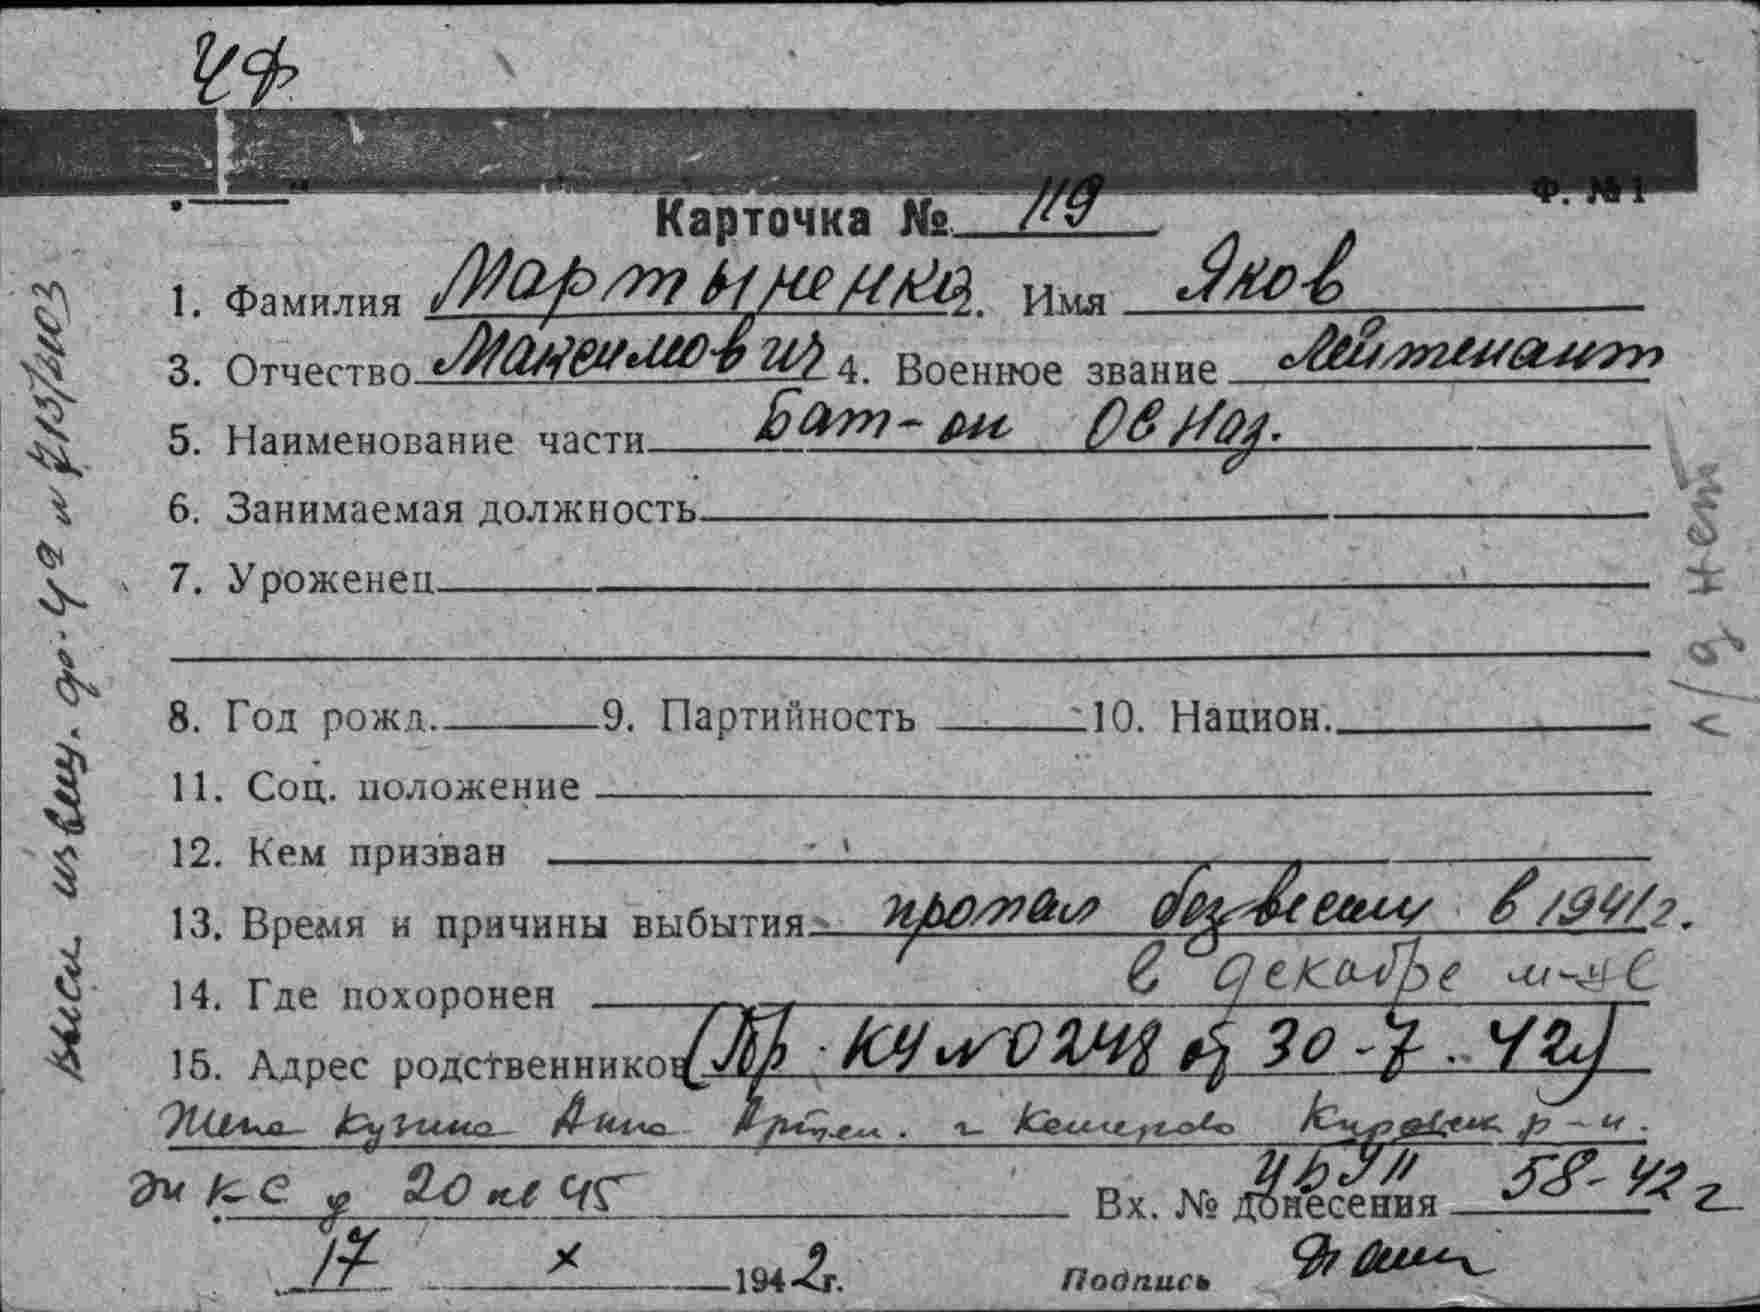 ЧФ
Ф. № 1
Карточка № 119
1. Фамилия Мартыненко 2. Имя Яков
3. Отчество Максимович 4. Военное звание Лейтенант
5. Наименование части Бат-он Ос Наз.
6. Занимаемая должность
7. Уроженец
8. Год рожд. 9. Партийность 10. Национ.
11. Соц. положение
12. Кем призван
13. Время и причины выбытия пропал без вести в 1941 г.
в декабре м-це
14. Где похоронен
15. Адрес родственников (Пр. КЧ № 0248 от 30-7.42г)
Жена Кузина Анна Артем. г Кемерово Кировск р-н.
20 кв 45
Вх. № донесения 58-42 г
17 X 1942 г.
Подпись
высл извещ. ф. 4а № 713/
л/д нет